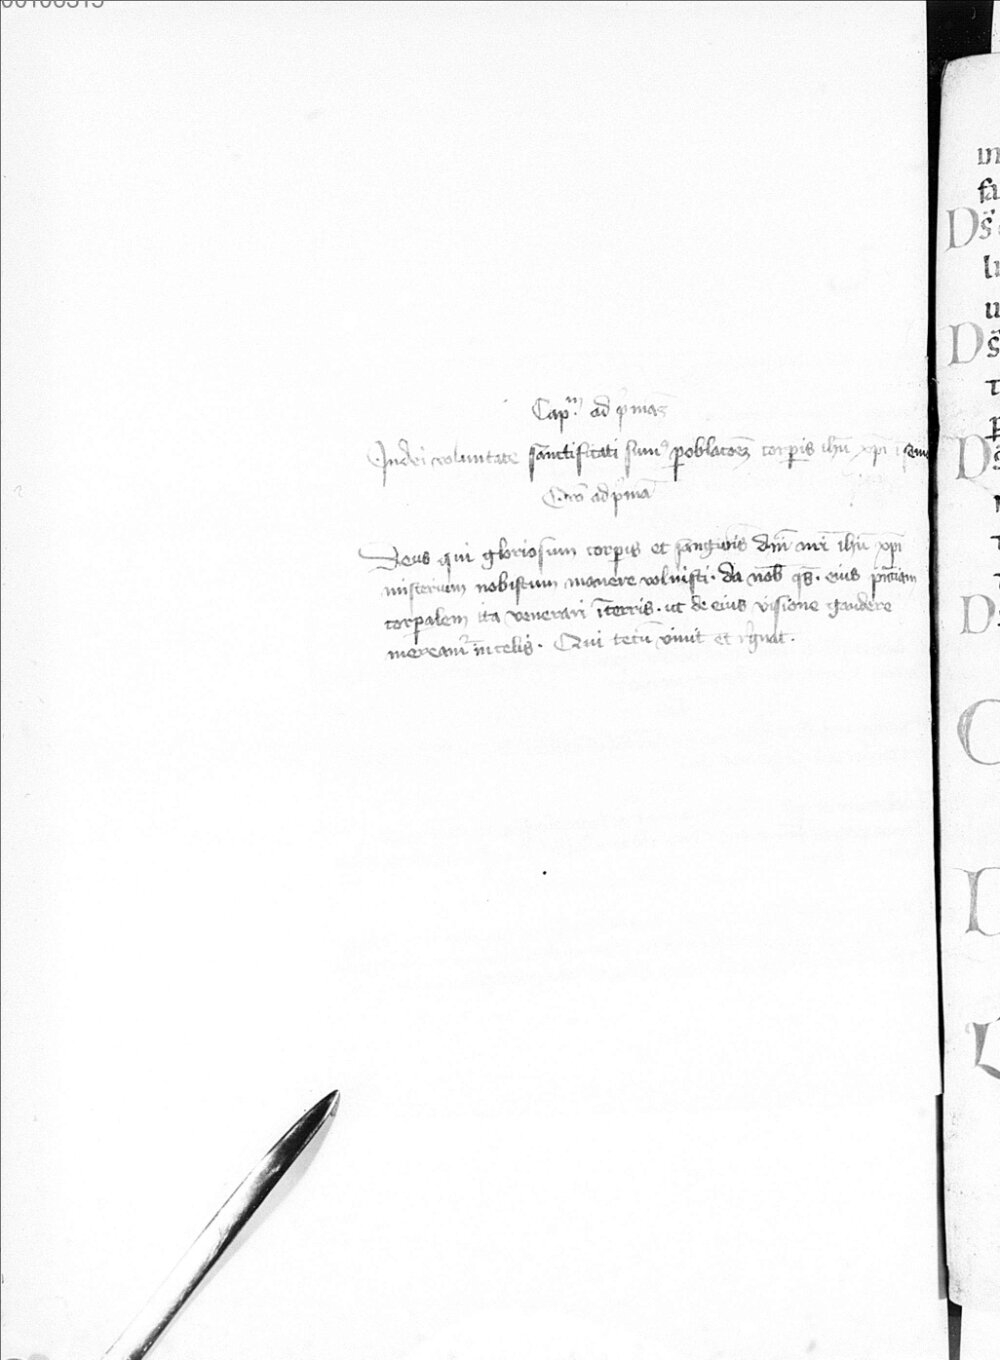 00108313
Capm. ad pmas
In dei voluntate sanctificati sum9 p oblacoez corpis ihu xpi i seme
Oro ad pma
Deus qui gloriosum corpis et sanguis dni nri ihu xpi
misterium nobiscum manere voluisti. da nob qs. eius pntiam
corpalem ita venerari i terris. ut de eius visione gaudere
mereamr in celis. Qui tecu vivit et rgnat.